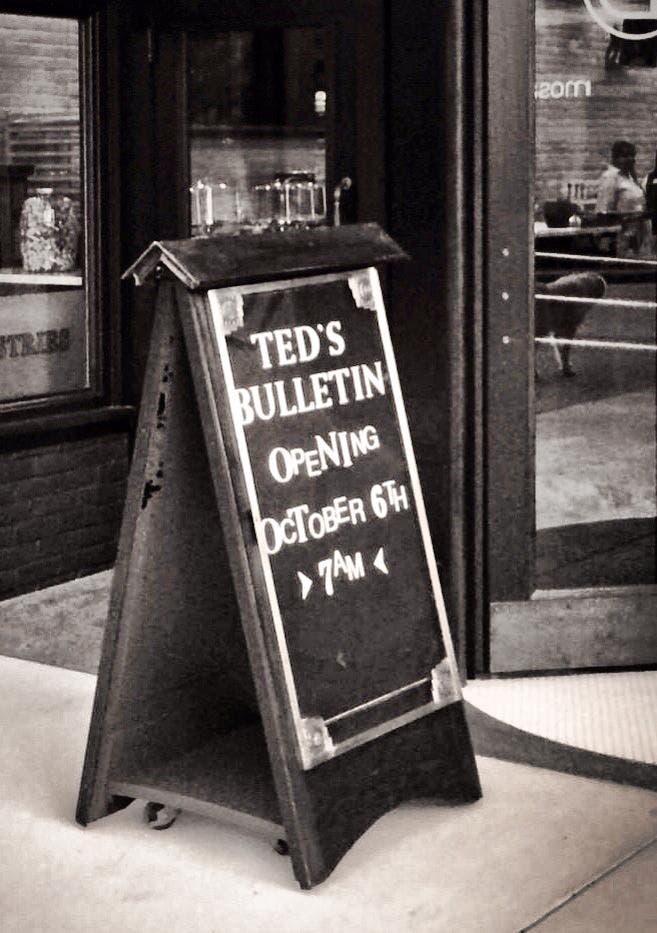 TED'S
BULLETIN
OPENING
OCTOBER 6TH
> 7AM <
STRIES